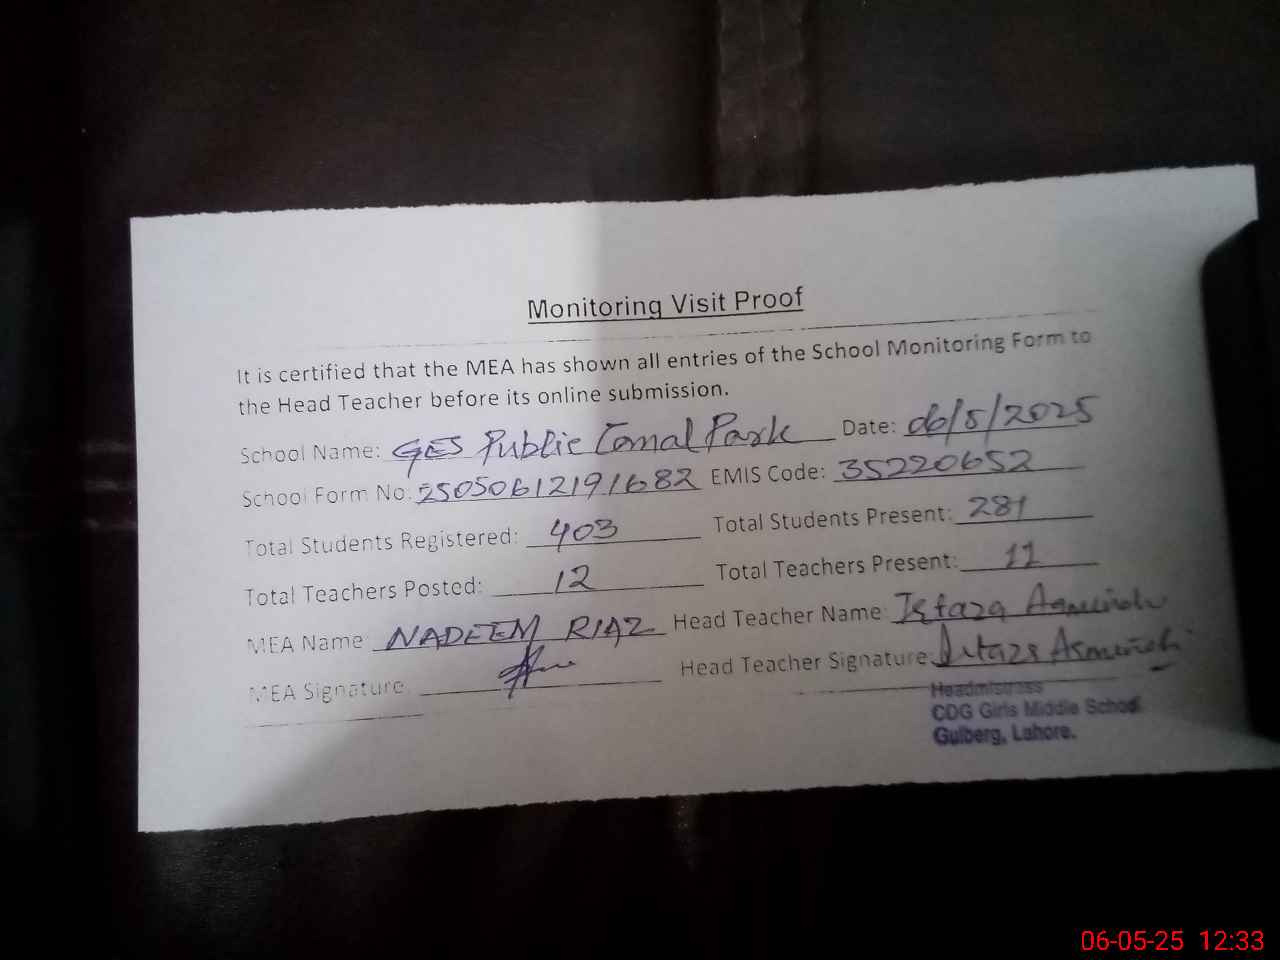 Monitoring Visit Proof
It is certified that the MEA has shown all entries of the School Monitoring Form to
the Head Teacher before its online submission.
School Name: GES Public Comal Park Date: 06/5/2025
School Form No: 25050612191682 EMIS Code: 35220652
Total Students Registered: 403 Total Students Present: 281
Total Teachers Posted: 12 Total Teachers Present: 11
MEA Name NADEEM RIAZ Head Teacher Name:
MEA Signature Head Teacher Signature:
Headmistress
CDG Girls Middle School
Gulberg, Lahore.
06-05-25 12:33